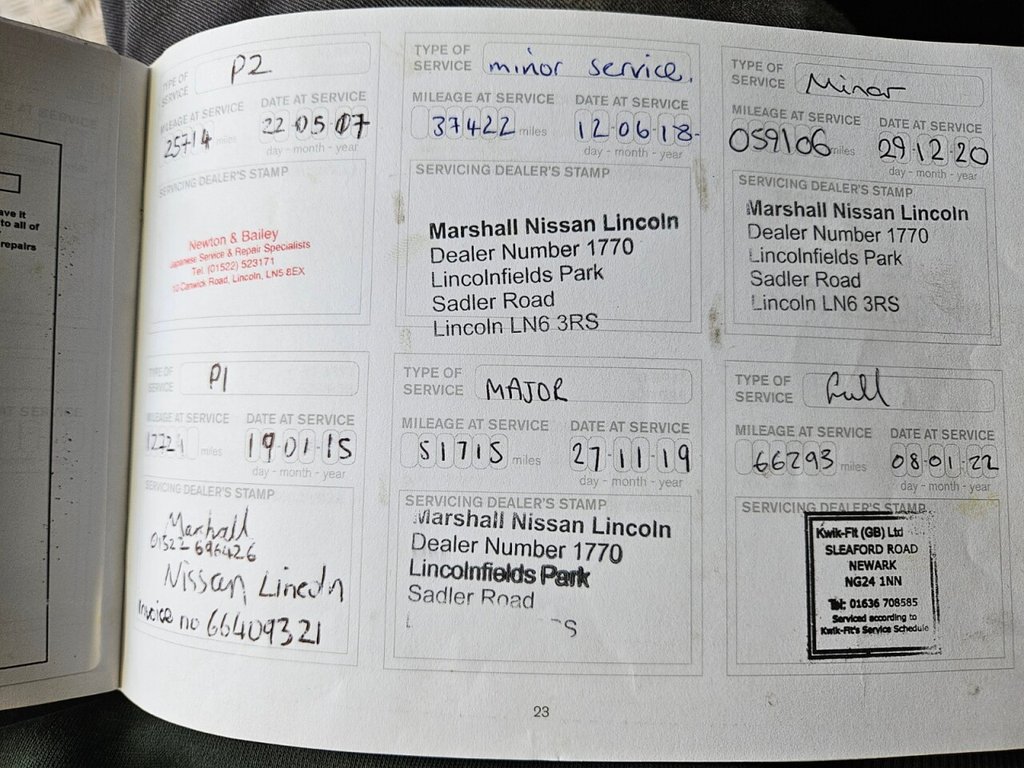 TYPE OF SERVICE P2
MILEAGE AT SERVICE DATE AT SERVICE
25714 miles 22 05 07
day - month - year
SERVICING DEALER'S STAMP
Newton & Bailey
Japanese Service & Repair Specialists
Tel. (01522) 523171
10 Canwick Road, Lincoln, LN5 8EX
TYPE OF SERVICE P1
MILEAGE AT SERVICE DATE AT SERVICE
12221 miles 19 01 15
day - month - year
SERVICING DEALER'S STAMP
Marshall
01522 696426
Nissan Lincoln
Invoice no 66409321
TYPE OF SERVICE minor service.
MILEAGE AT SERVICE DATE AT SERVICE
37422 miles 12 06 18
day - month - year
SERVICING DEALER'S STAMP
Marshall Nissan Lincoln
Dealer Number 1770
Lincolnfields Park
Sadler Road
Lincoln LN6 3RS
TYPE OF SERVICE MAJOR
MILEAGE AT SERVICE DATE AT SERVICE
51715 miles 27 11 19
day - month - year
SERVICING DEALER'S STAMP
Marshall Nissan Lincoln
Dealer Number 1770
Lincolnfields Park
Sadler Road
TYPE OF SERVICE Minor
MILEAGE AT SERVICE DATE AT SERVICE
059106 miles 29 12 20
day - month - year
SERVICING DEALER'S STAMP
Marshall Nissan Lincoln
Dealer Number 1770
Lincolnfields Park
Sadler Road
Lincoln LN6 3RS
TYPE OF SERVICE full
MILEAGE AT SERVICE DATE AT SERVICE
66293 miles 08 01 22
day - month - year
SERVICING DEALER'S STAMP
Kwik-Fit (GB) Ltd
SLEAFORD ROAD
NEWARK
NG24 1NN
Tel: 01636 708585
Serviced according to
Kwik-Fit's Service Schedule
23